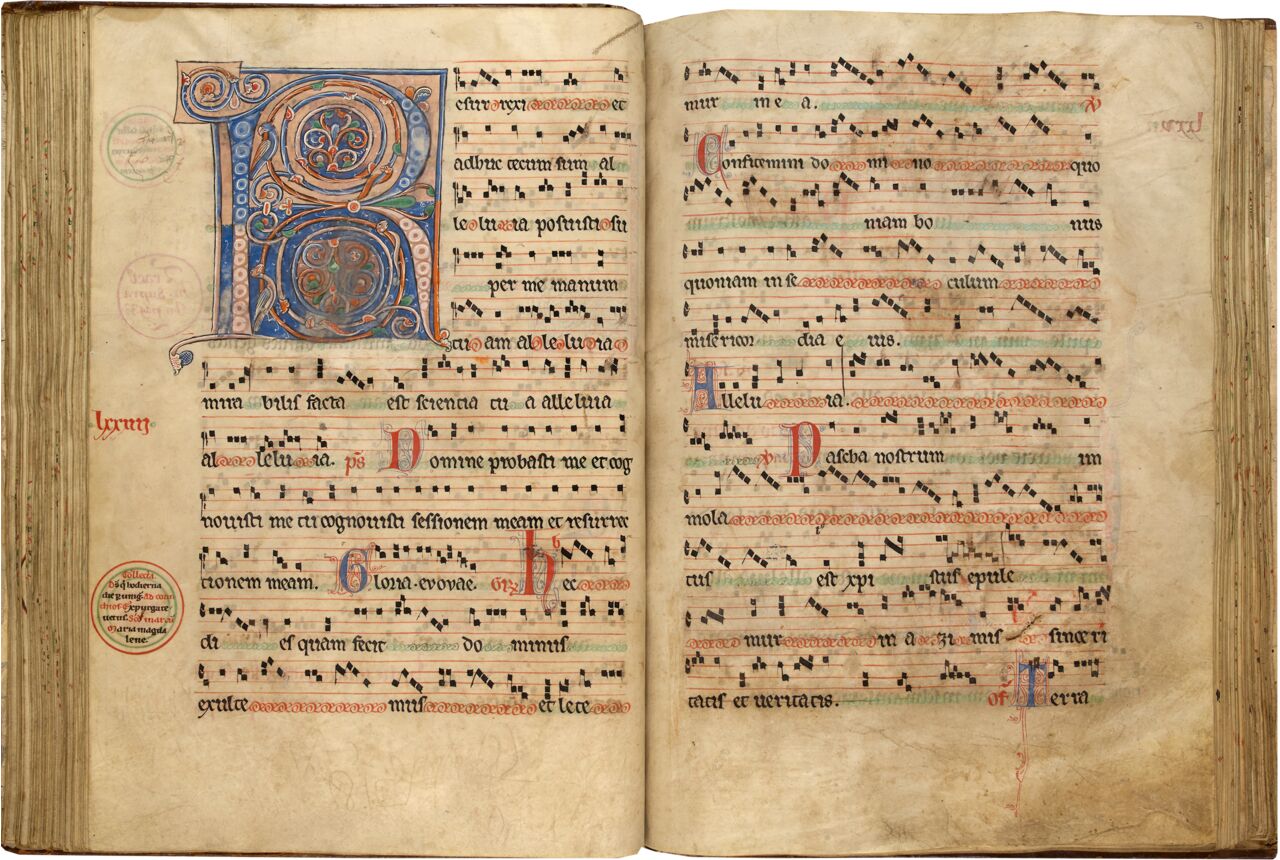 R
esurrexi et
adhuc tecum sum al
leluia posuisti su
per me manum
tuam alleluia
mirabilis facta est sciencia tua alleluia
alleluia. ps Domine probasti me et cog
novisti me tu cognovisti sessionem meam et resurrec
tionem meam. Gloria. evovae. Gr Hec
dies quam fecit dominus
exultemus et lete
lxxiiij
Collecta
Ds q hodierna
die
expurgate
vetus.
maria magda
lene.
mur in ea. V
Confitemini domino quo
niam bonus
quoniam in seculum
misericordia eius.
Alleluia.
V Pascha nostrum im
mola
tus est xpistus epule
mur in azimis sinceri
tatis et veritatis. Of Terra